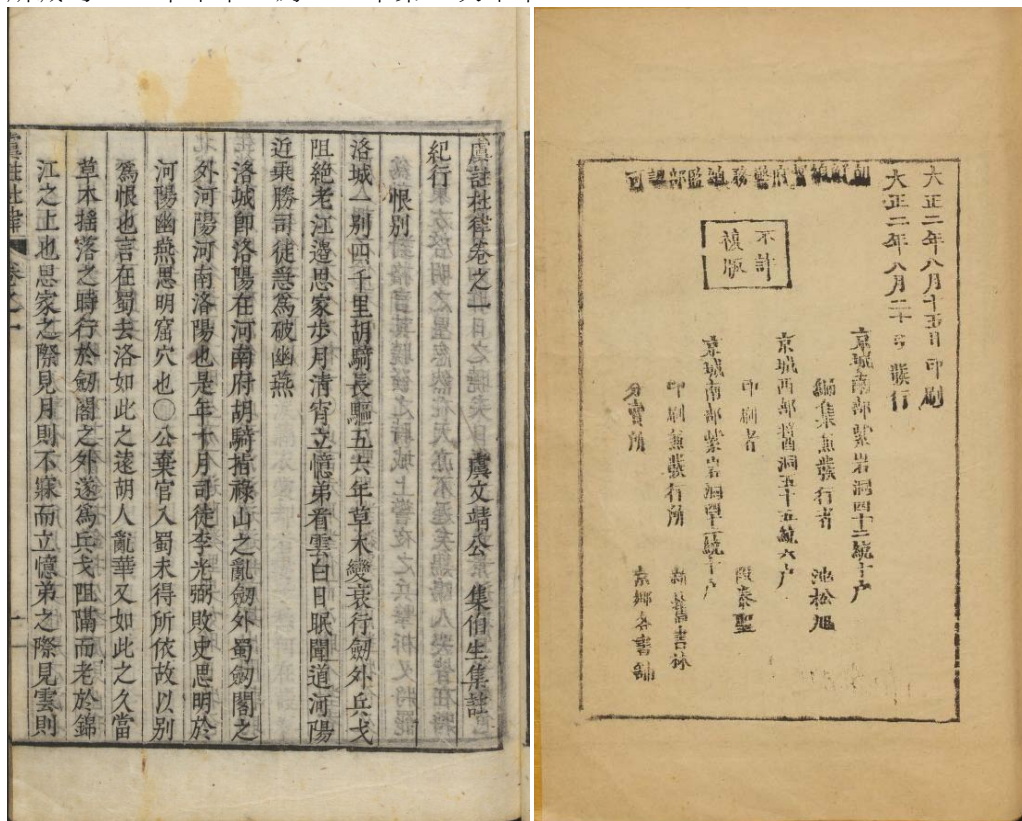 虞註杜律卷之一
虞文靖公 集伯生集註
紀行
恨別
洛城一別四千里胡騎長驅五六年草木變衰行劒外兵戈
阻絶老江邉思家步月清宵立憶弟看雲白日眠聞道河陽
近乗勝司徒急爲破幽燕
洛城卽洛陽在河南府胡騎指祿山之亂劒外蜀劒閣之
外河陽河南洛陽也是年十月司徒李光弼敗史思明於
河陽幽燕思明窟穴也〇公棄官入蜀未得所依故以别
爲恨也言在蜀去洛如此之遠胡人亂華又如此之久當
草木揺落之時行於劒閣之外遂爲兵戈阻隔而老於錦
江之上也思家之際見月則不寐而立憶弟之際見雲則
虞註杜律 卷之一
大正二年八月十五日 印刷
大正二年八月二十日 發行
不許
複版
京城南部紫岩洞四十二統十户
編集兼發行者 池松旭
京城西部
洞五十五統六户
印刷者
泰聖
京城南部紫岩洞
統十户
印刷兼發行所 新舊書林
分賣所 京鄉各書舖